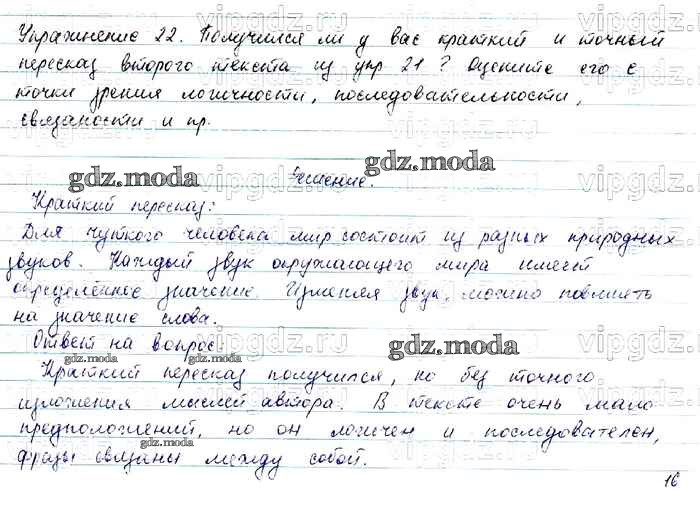 Упражнение 22. Получился ли у вас краткий и точный
пересказ второго текста из упр 21? Оцените его с
точки зрения логичности, последовательности,
связаности и пр.
gdz.moda Решение. gdz.moda
Краткий пересказ:
Для чуткого человека мир состоит из разных природных
звуков. Каждый звук окружающего мира имеет
определённое значение. Изменяя звук, можно повлиять
на значение слова.
Ответ на вопрос:
gdz.moda gdz.moda gdz.moda
Краткий пересказ получился, но без точного
изложения мыслей автора. В тексте очень мало
предположений, но он логичен и последователен,
gdz.moda
фразы связаны между собой.
16